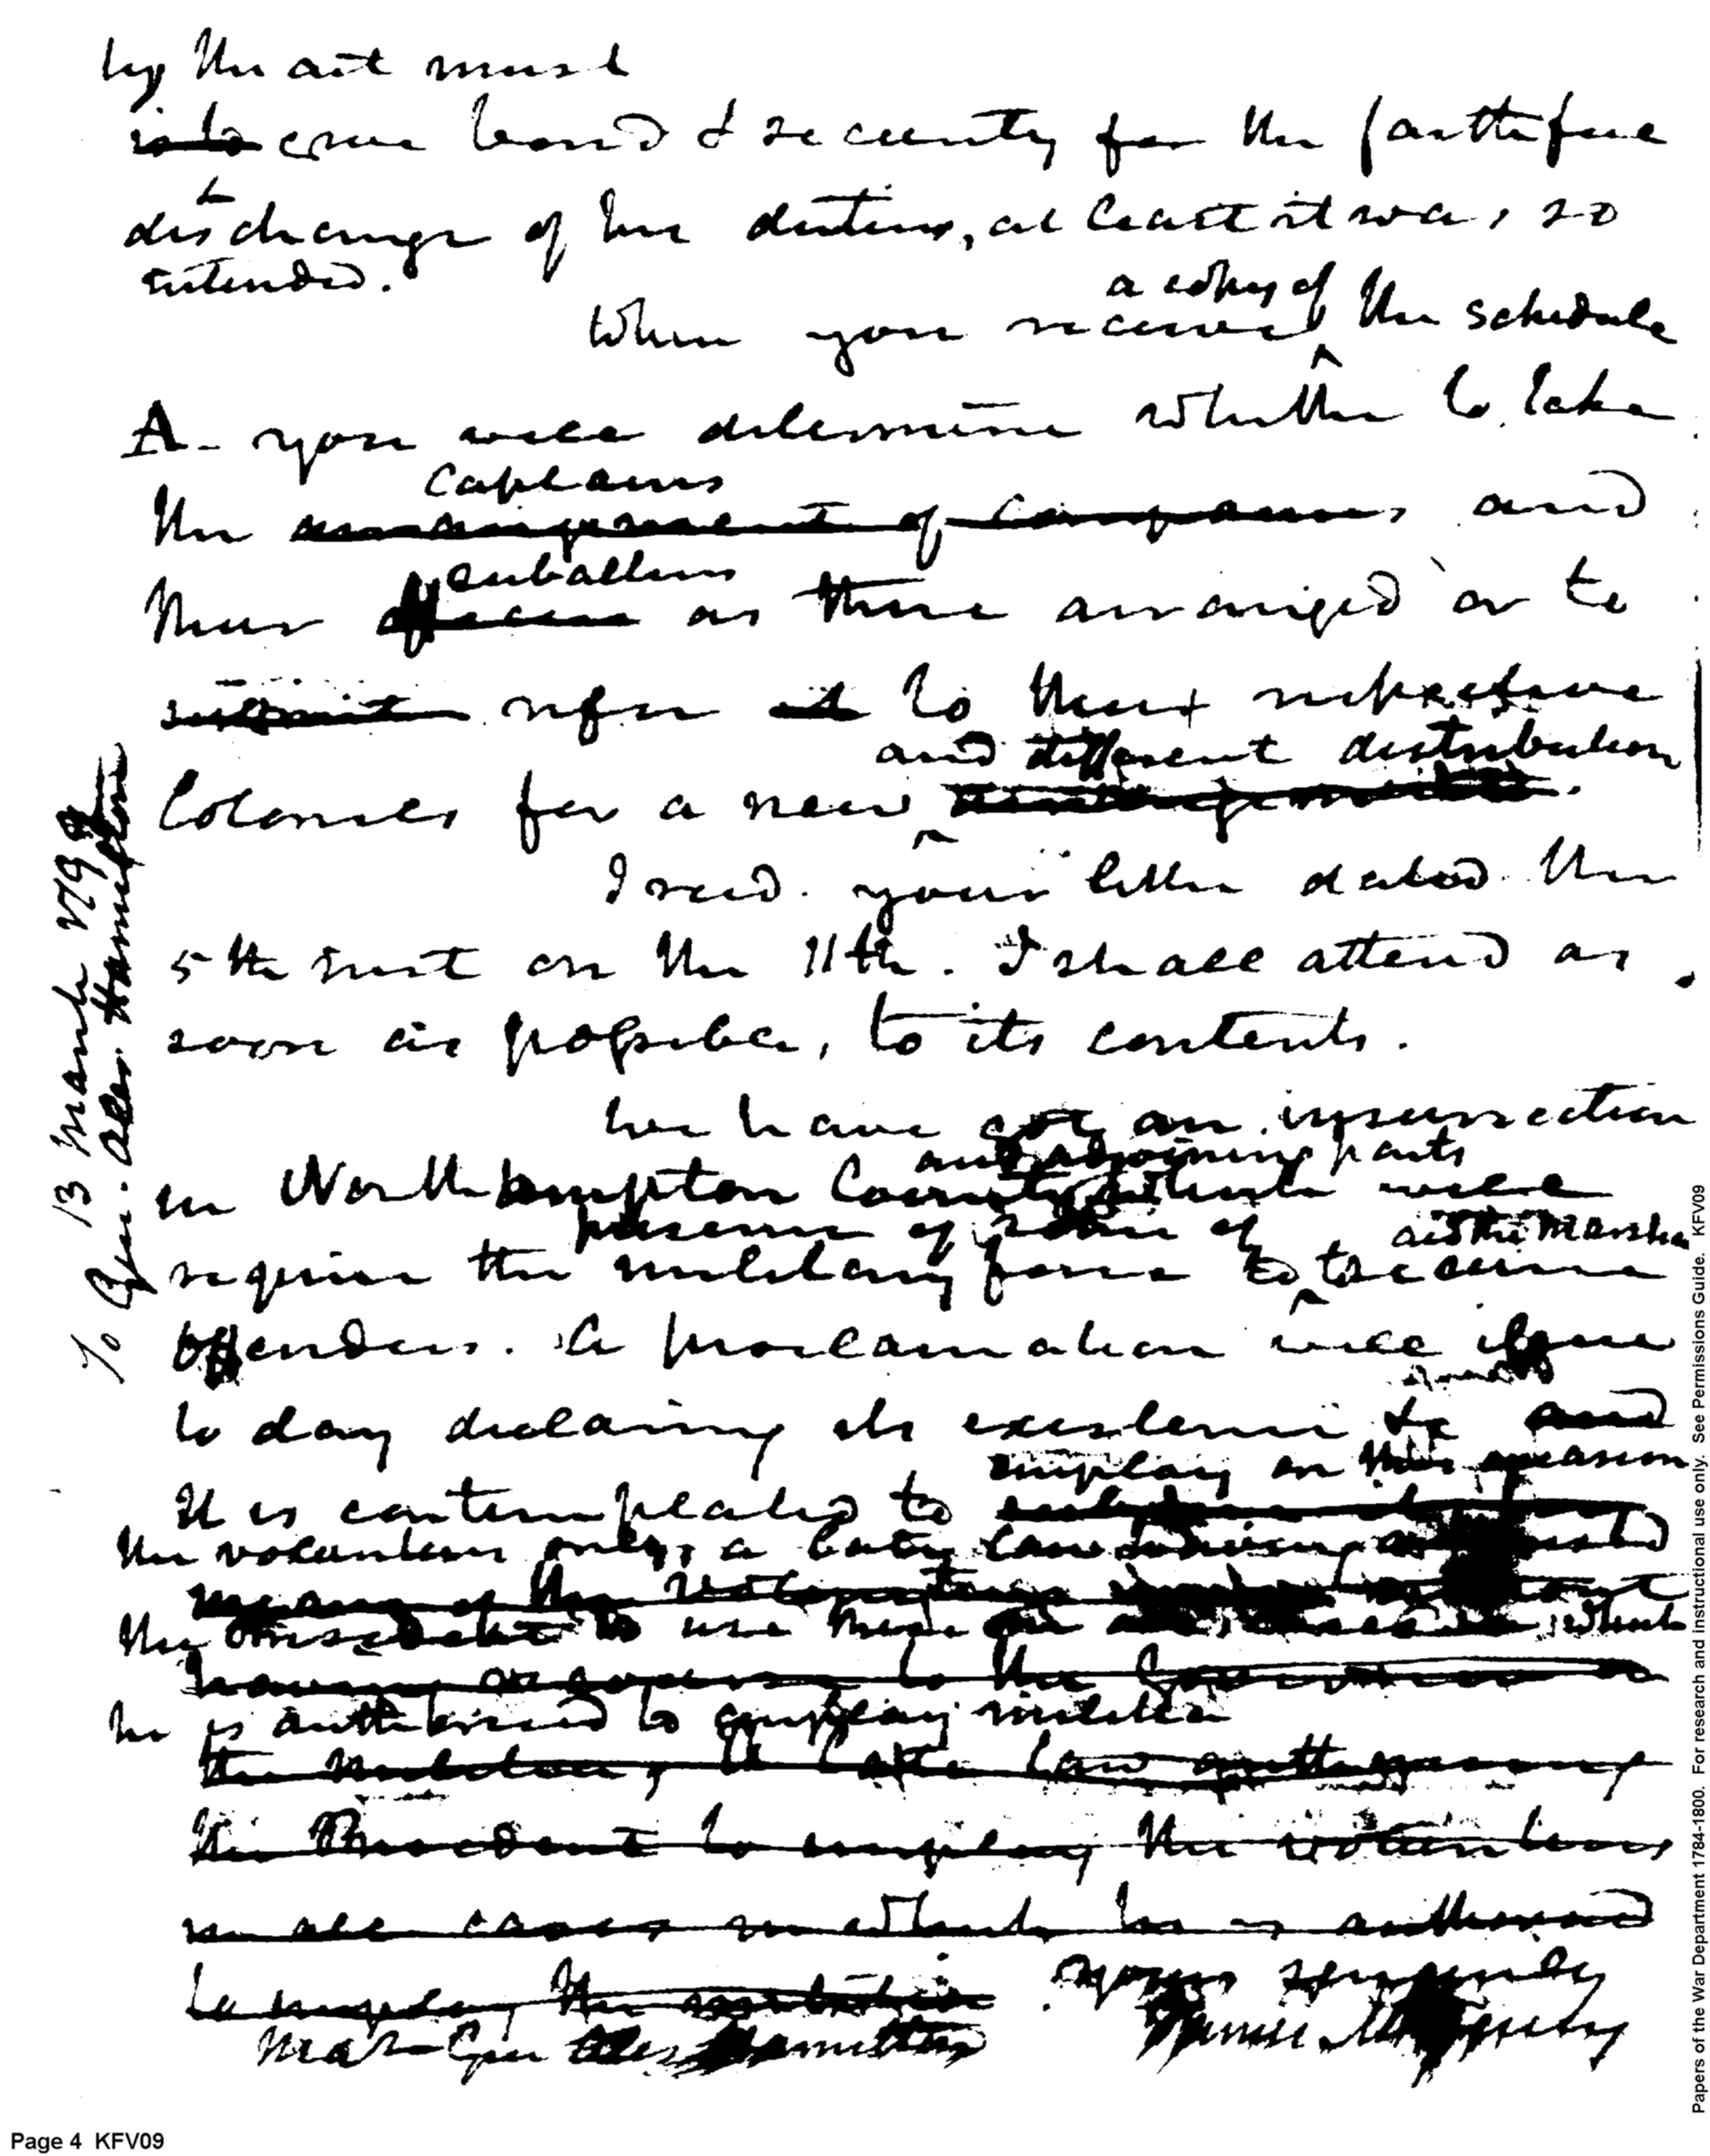 by the act must
is to give bond & security for the faithful
discharge of his duties, at least it was so
intended.
a copy of
When you receive the schedule
A - you will determine whether to take
captains
the arrangement of companies and
subalterns
their officers as there arranged or to
submit refer it to their respective
and different distribution
Colonels for a new arrangement.
I recd. your letter dated the
5th inst on the 11th. I shall attend as
soon as possible, to its contents.
We have got an insurrection
and adjoining parts
in Northampton County which will
presence of some of aid the Marshal
require the military force to to secure
offenders. A proclamation will issue
to day declaring its existence &c and
employ on this occasion
It is contemplated to
the volunteers only, a late law having authorised
means of the volunteers without
the President to use them in all cases in which
having recourse to the Governor or
he is authorised to employ militia
the militia, the late law authorising
the President to employ the volunteers
in all cases in which he is authorised
to employ the militia. Yours sincerely
Major Gen Alex Hamilton James McHenry
13 March 1799
To Gen. Alex. Hamilton
Papers of the War Department 1784-1800. For research and instructional use only. See Permissions Guide. KFV09
Page 4 KFV09